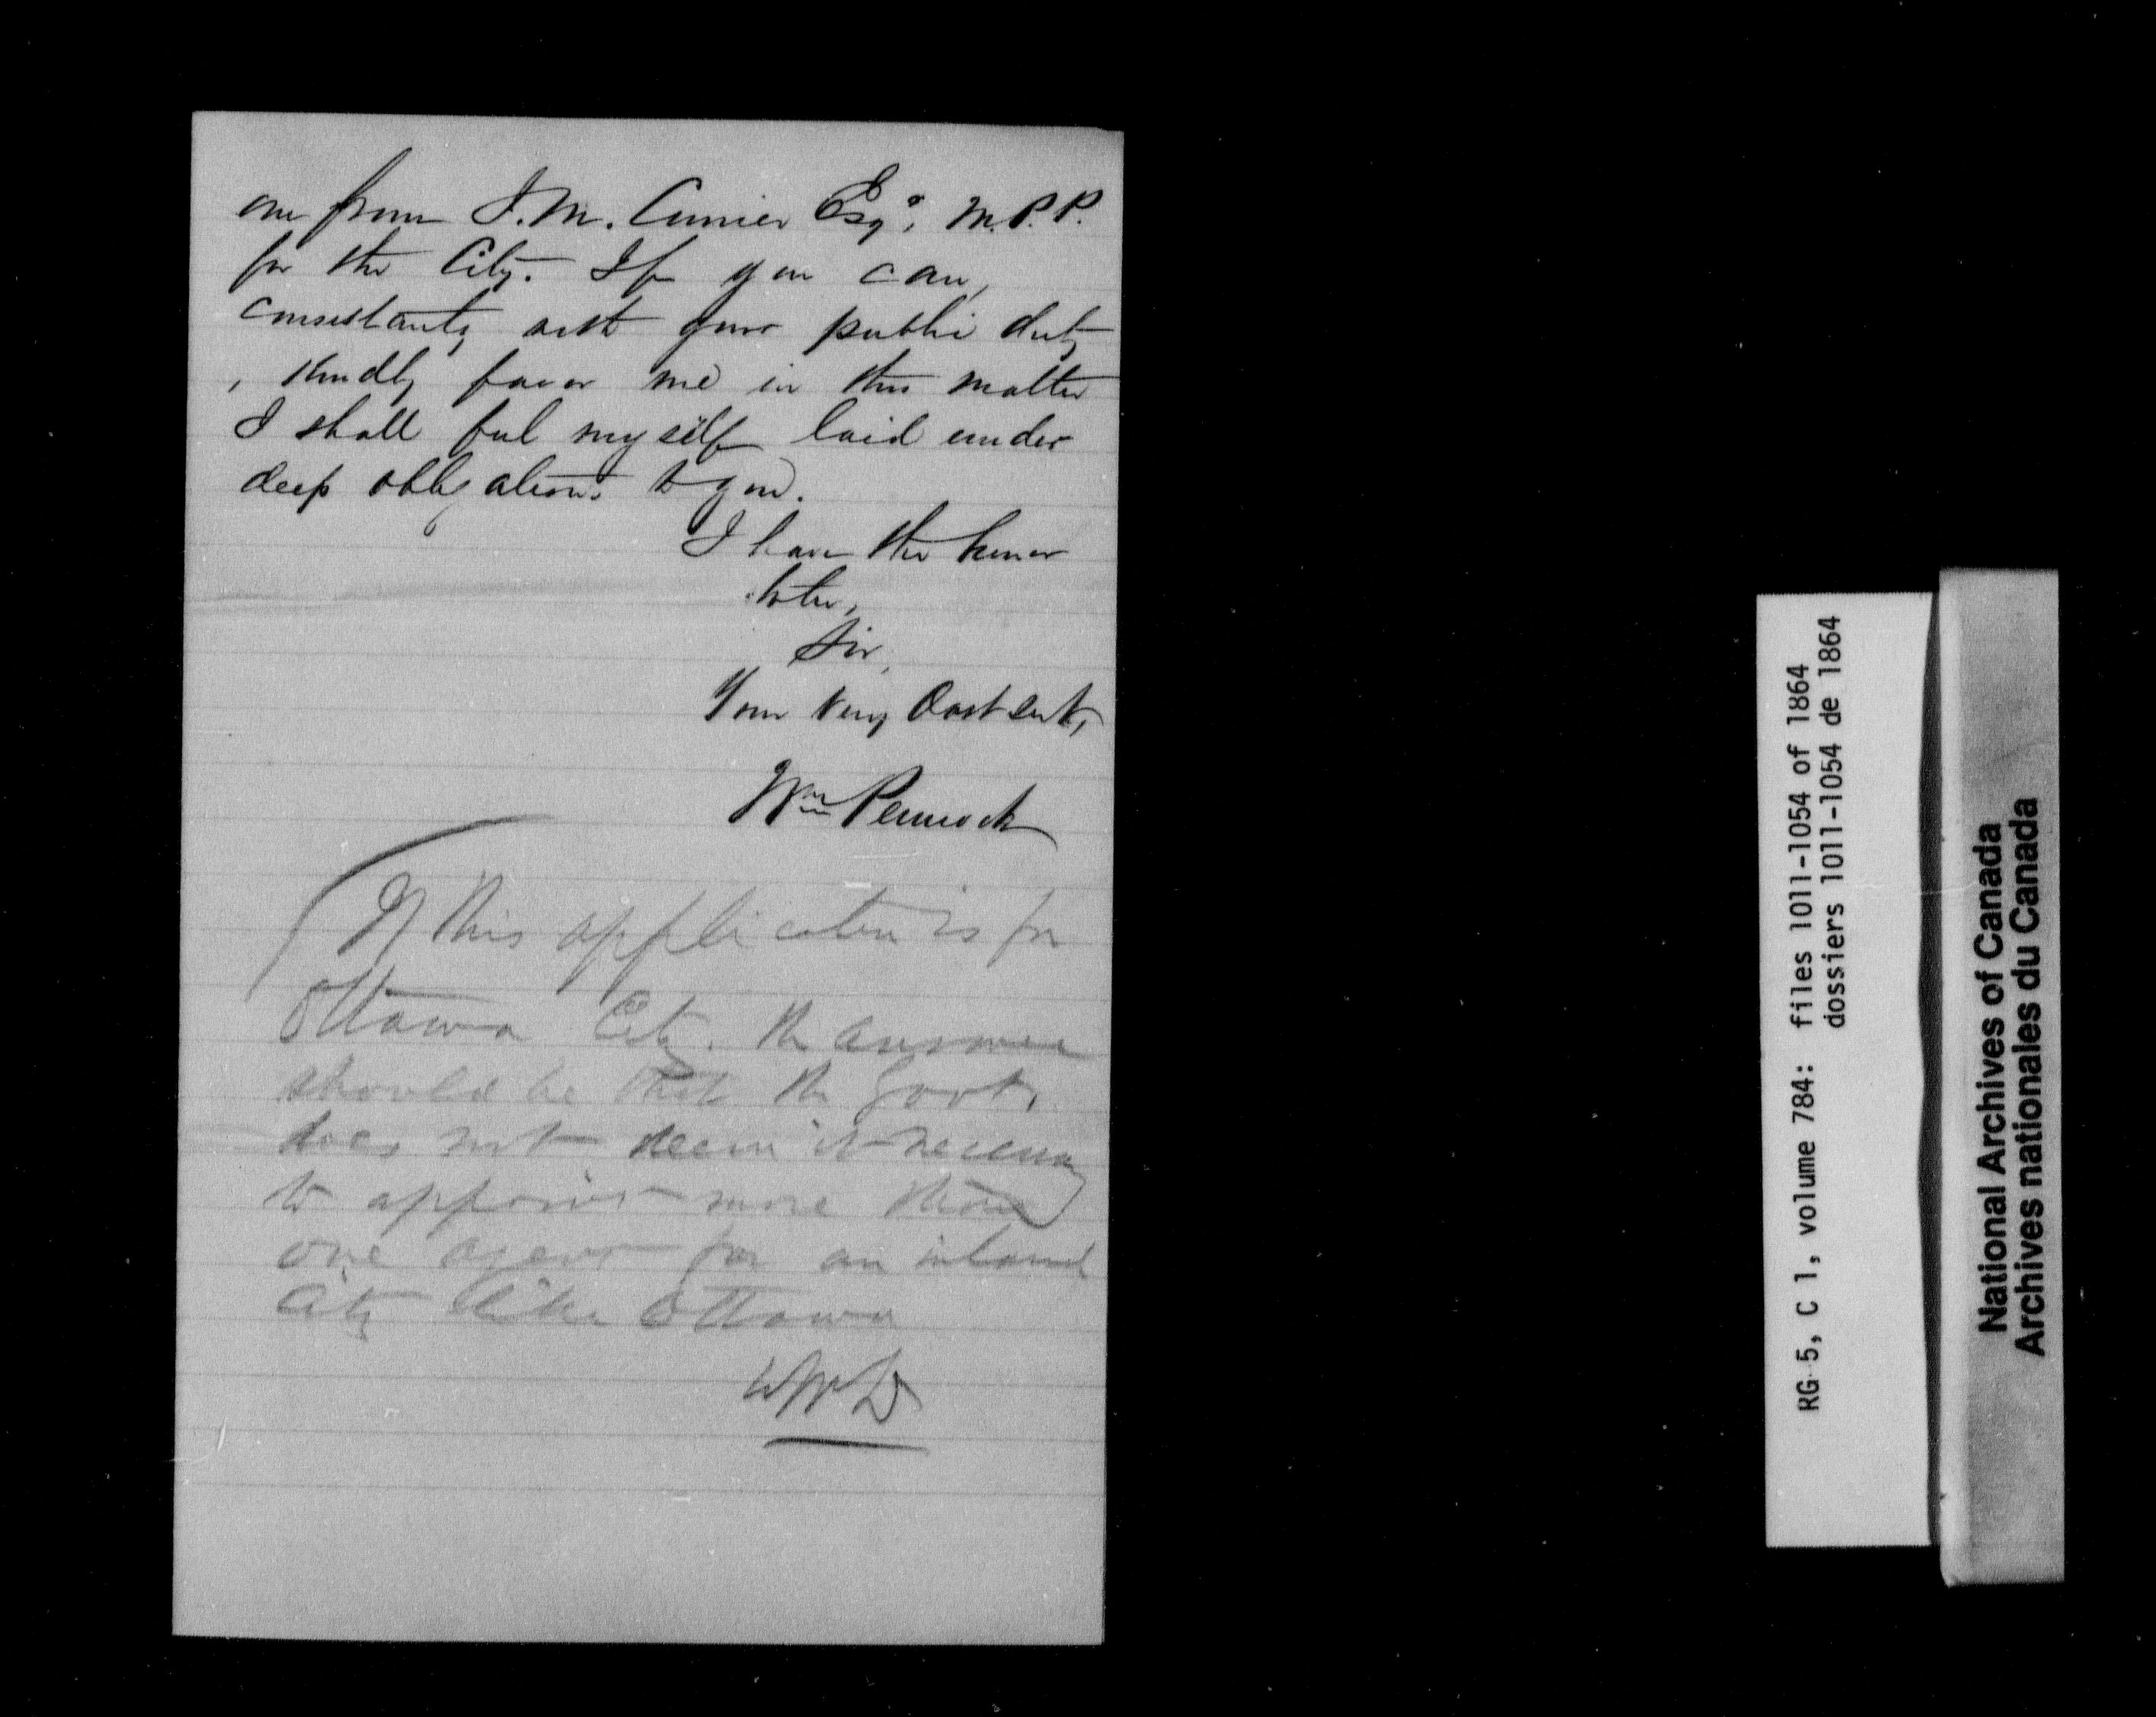 one from J. M. Currier Esqr, M.P.P.
for the City. If you can,
consistantly with your public duty
, kindly favor me in this matter
I shall feel myself laid under
deep obligations to you.
I have the honor
to be,
Sir,
Your very Obdt Servt,
Wm Pennock
If this application is for
Ottawa City. the answer
should be that the Govt.
does not deem it necessary
to appoint more than
one agent for an inland
City like Ottawa
RG 5, C 1, volume 784: files 1011-1054 of 1864
dossiers 1011-1054 de 1864
National Archives of Canada
Archives nationales du Canada